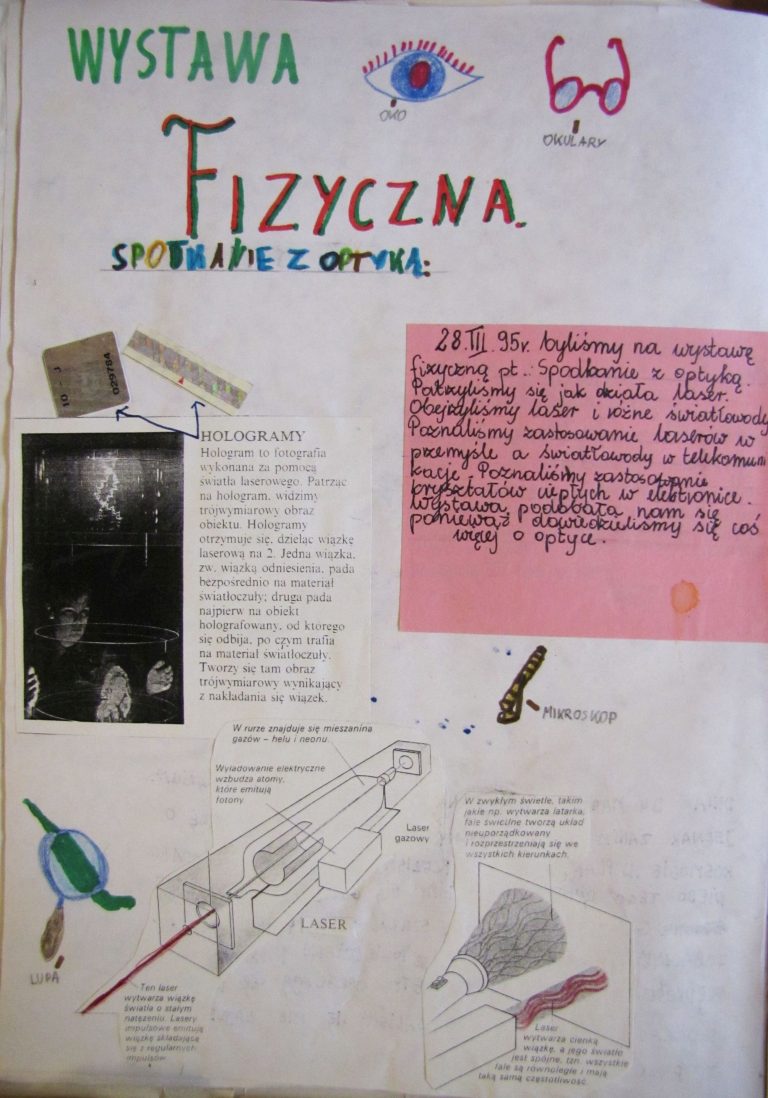 WYSTAWA
OKO
OKULARY
FIZYCZNA.
SPOTKANIE Z OPTYKĄ:
10 - J
029784
28.III.95r. byliśmy na wystawę
fizyczną pt.: Spodkanie z optyką.
Patrzyliśmy się jak działa laser.
Obejżyliśmy laser i różne światłowody
Poznaliśmy zastosowanie laserów w
przemyśle a światłowody w telekomuni
kacje. Poznaliśmy zastosowanie
kryształów ciepłych w elektronice.
Wystawa podobała nam się
ponieważ dowiedzieliśmy się coś
więcej o optyce.
HOLOGRAMY
Hologram to fotografia
wykonana za pomocą
światła laserowego. Patrząc
na hologram, widzimy
trójwymiarowy obraz
obiektu. Hologramy
otrzymuje się, dzieląc wiązkę
laserową na 2. Jedna wiązka,
zw. wiązką odniesienia, pada
bezpośrednio na materiał
światłoczuły; druga pada
najpierw na obiekt
holografowany, od którego
się odbija, po czym trafia
na materiał światłoczuły.
Tworzy się tam obraz
trójwymiarowy wynikający
z nakładania się wiązek.
MIKROSKOP
W rurze znajduje się mieszanina
gazów – helu i neonu.
Wyładowanie elektryczne
wzbudza atomy,
które emitują
fotony
Laser
gazowy
LASER
W zwykłym świetle, takim
jakie np. wytwarza latarka,
fale świetlne tworzą układ
nieuporządkowany
i rozprzestrzeniają się we
wszystkich kierunkach.
LUPA
Ten laser
wytwarza wiązkę
światła o stałym
natężeniu. Lasery
impulsowe emitują
wiązkę składającą
się z regularnych
impulsów.
Laser
wytwarza cienką
wiązkę, a jego światło
jest spójne, tzn. wszystkie
fale są równoległe i mają
taką samą częstotliwość.